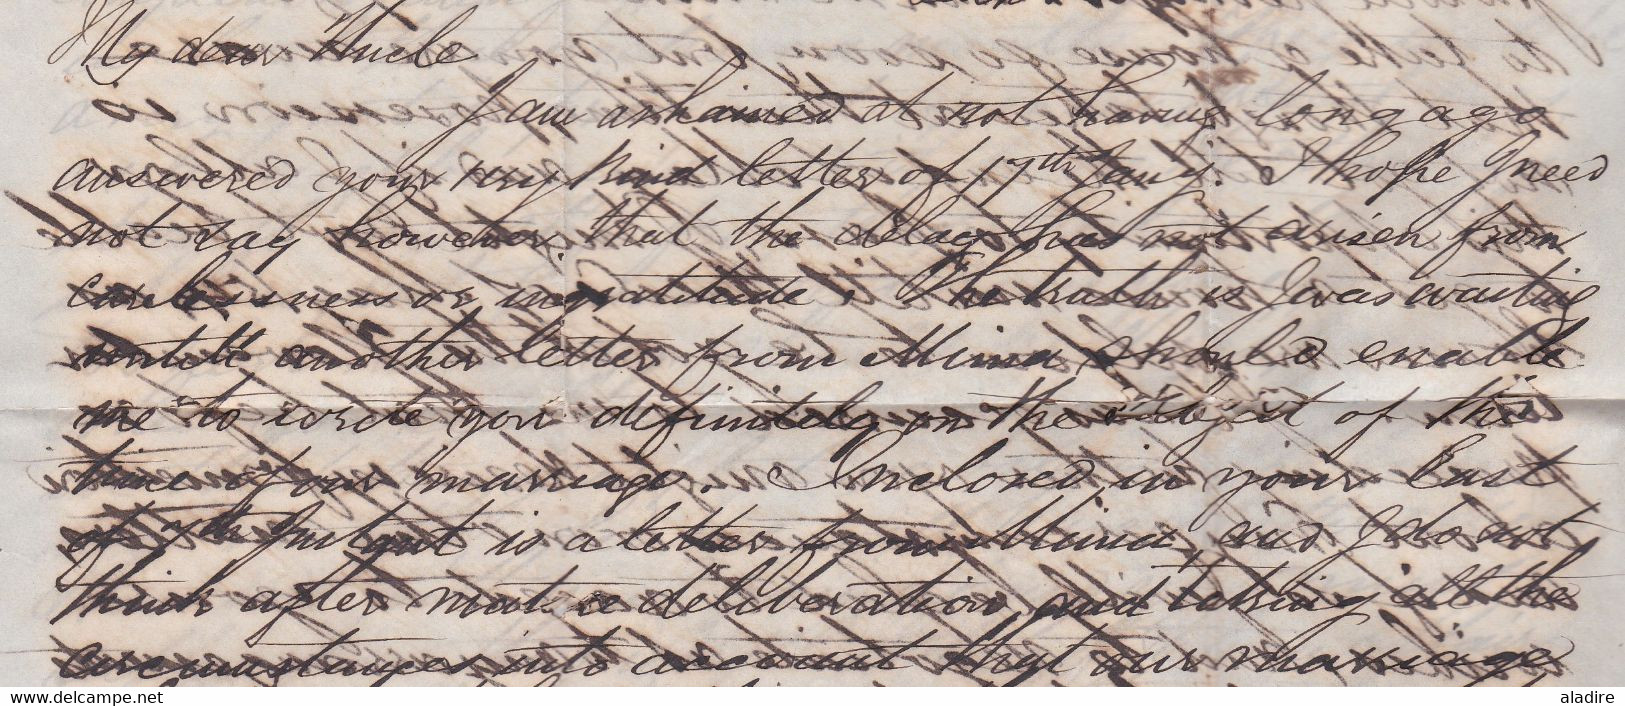 My dear Uncle
I am ashamed at not having long ago
answered your very kind letter of 17th Jany. I hope I need
not say however that the delay has not arisen from
carelessness or ingratitude. The truth is I was waiting
untill another letter from Mima should enable
me to write you definitely on the subject of the
time of our marriage. Inclosed in your last
of 7th Instant is a letter from Mima, and I do not
think after mature deliberation and taking all the
circumstances into account that our marriage
delcampe.net
aladire